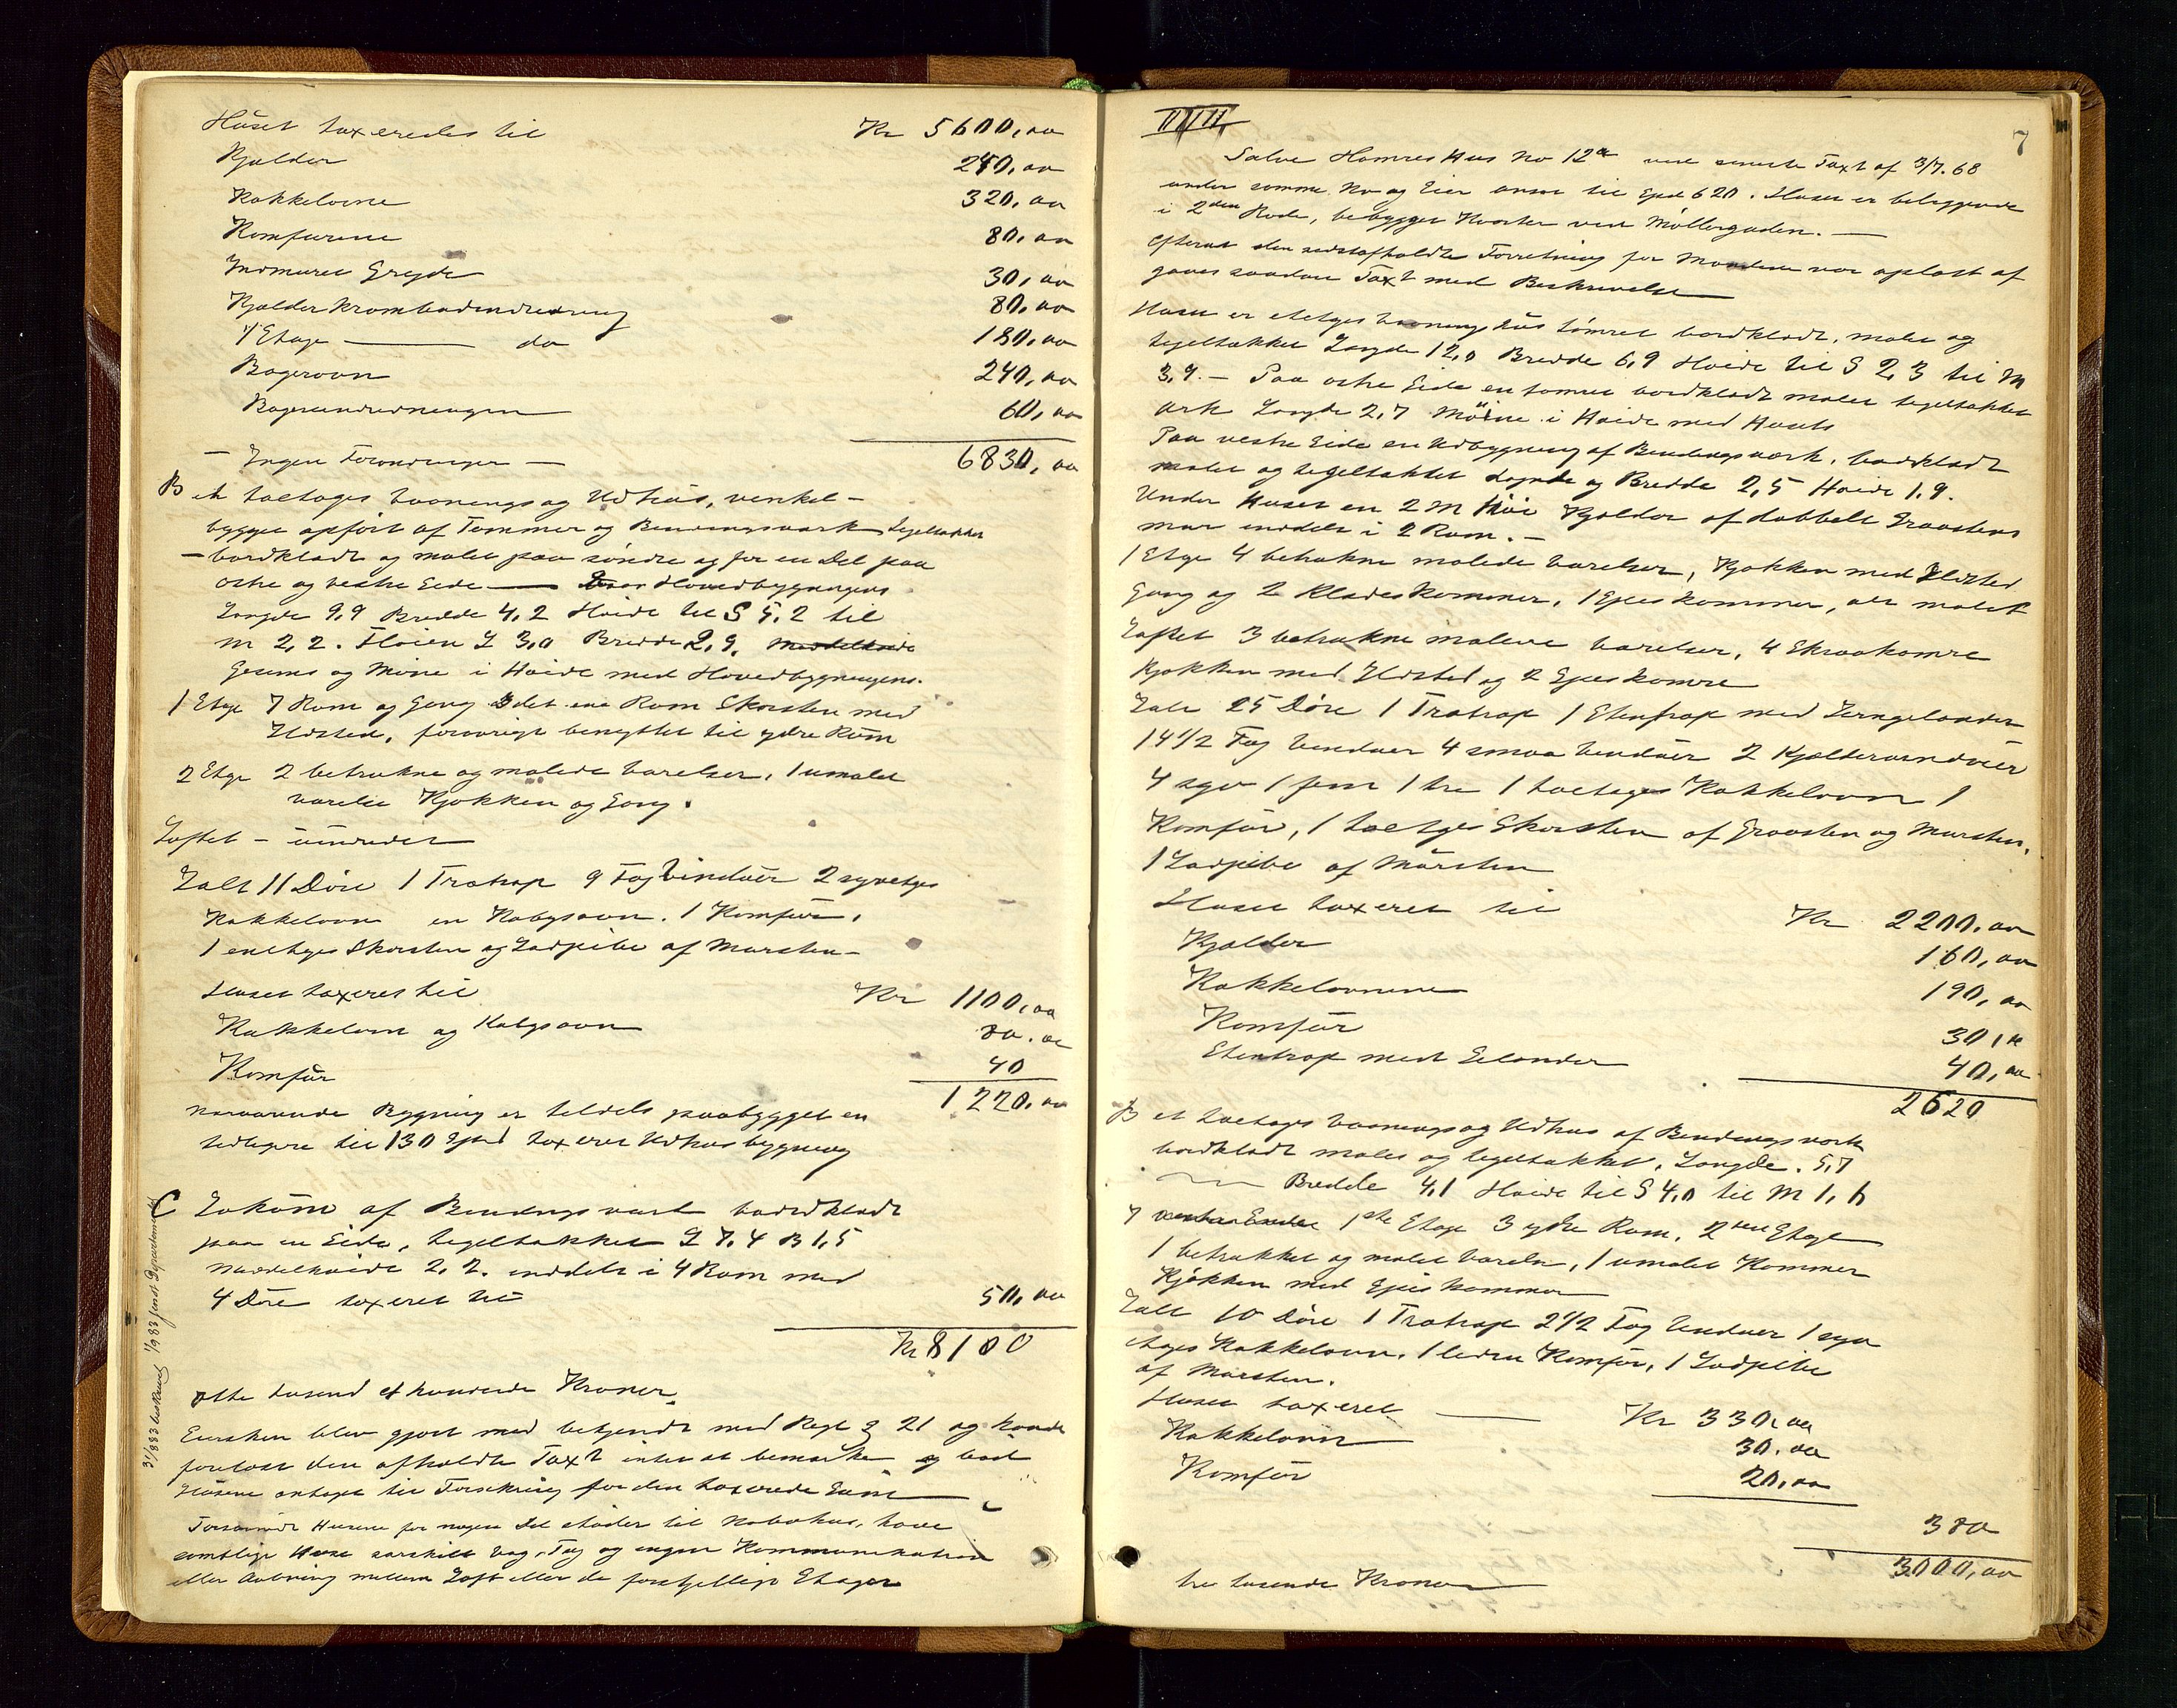 Huset taxeredes til Kr 5600,00
Kjælder 240,00
Kakkelovne 320,00
Komfurene 80,00
Indmuret Gryde 30,00
Kjælder Krambodindredning 80,00
1 Etage — do 180,00
Bagerovn 240,00
Bagerindredningen 60,00
6830,00
— Ingen Forandringer —
B et toetages Vaanings og Udhus, vinkel-
bygget opført af Tømmer og Bindingsværk tegeltækket
— bordklædt og malet paa søndre og for en Del paa
østre og vestre Side — Hovedbygningens
Længde 9,9 Bredde 4,2 Høide til S 5,2 til
M 2,2. Fløien L 3,0 Bredde 2,9.
Gesims og Møne i Høide med Hovedbygningens.
1 Etage 7 Rum og Gang I det ene Rum Skorsten med
Ildsted, forøvrigt benyttet til ydre Rum
2 Etge 2 betrukne og malede Værelser, 1 umalet
værelse Kjøkken og Gang.
Loftet – uindredet
Ialt 11 Døre 1 Trætrap 9 Fag Vinduer 2 syvetges
Kakkelovn en Kabysovn. 1 Komfur.
1 enetages Skorsten og Ladpibe af Mursten —
Huset taxeret til Kr 1100,00
Kakkelovn og Kabysovn 80.00
Komfur 40
1220,00
nærværende Bygning er tildels paabygget en
tidligere til 130 Spd taxeret Udhusbygning
C Lokum af Bindingsværk bordklædt
paa en Side, tegeltækket L 7,4 B 1,5
Middelhøide 2,2. inddelt i 4 Rum med
4 Døre taxeret til 50,00
Kr 8100
otte tusend et hundrede Kroner
Eiersken blev gjort med bekjendt med Regl § 21 og havde
forelæst den afholdte Taxt intet at bemærke og bad
Husene antaget til Forsikring for den taxerede Sum
Forsaavidt Husene for nogen Del støder til Nabohus, have
samtlige Huse særskilt Væg, Tag og ingen Kommunikation
eller Aabning mellem Loft eller de forskjellige Etager
31/1 883 beskrevet 1/9 83 sendt Departementet
7
Salve Hamres Hus No 12a ved seneste Taxt af 3/7.68
under samme No og Eier ansat til Spd 620. Huset er beliggende
i 2den Rode, bebygget Kvarter ved Møllergaden. —
Efterat den sidstafholdte Forretning for Mændene var oplæst af
gaves saadan Taxt med Beskrivelse
Huset er etetges Vaaningshus tømret bordklædt, malet og
tegeltækket Længde 12,0 Bredde 6,9 Høide til S 2,3 til M
3,9. — Paa østre Side en tømret bordklædt malet tegeltækket
Ark Længde 2,7 Møine i Høide med Husets
Paa vestre Side en Udbygning af Bindingsværk, bordklædt
malet og tegeltækket Længde og Bredde 2,5 Høide 1,9.
Under Huset en 2 M høi Kjælder af dobbelt Graastens
mur inddelt i 2 Rum. —
1 Etge 4 betrukne malede Værelser, Kjøkken med Ildsted
Gang og 2 Klædeskammer, 1 Spiskammer, alt malet
Loftet 3 betrukne malede Værelser, 4 Skraakamre
Kjøkken med Ildsted og 2 Spiskamre
Ialt 25 Døre 1 Trætrap 1 Stentrap med Jerngelænder
14 1/2 Fag Vinduer 4 smaa Vinduer 2 Kjældervinduer
4 syv 1 fem 1 tre 1 toetages Kakkelovn 1
Komfur, 1 toetges Skorsten af Graasten og Mursten,
1 Ladpibe af Mursten
Huset taxeret til Kr 2200,00
Kjælder 160,00
Kakkelovnene 190,00
Komfur 30,00
Stentrap med Gelænder 40,00
2620
B et toetages Vaanings og Udhus af Bindingsværk
bordklædt malet og tegeltækket. Længde. 5,7
Bredde 4,1 Høide til S 4,0 til M 1,6
1ste Etage 3 ydre Rum, 2den Etage
1 betrukket og malet Værelse, 1 umalet Kammer
Kjøkken med Spiskammer
Ialt 10 Døre 1 Trætrap 2 1/2 Fag Vinduer 1 syv
etages Kakkelovn. 1 liden Komfur, 1 Ladpibe
af Mursten.
Huset taxeret — Kr 330,00
Kakkelovn 30.00
Komfur 20,00
380
3000,00
tre tusende Kroner